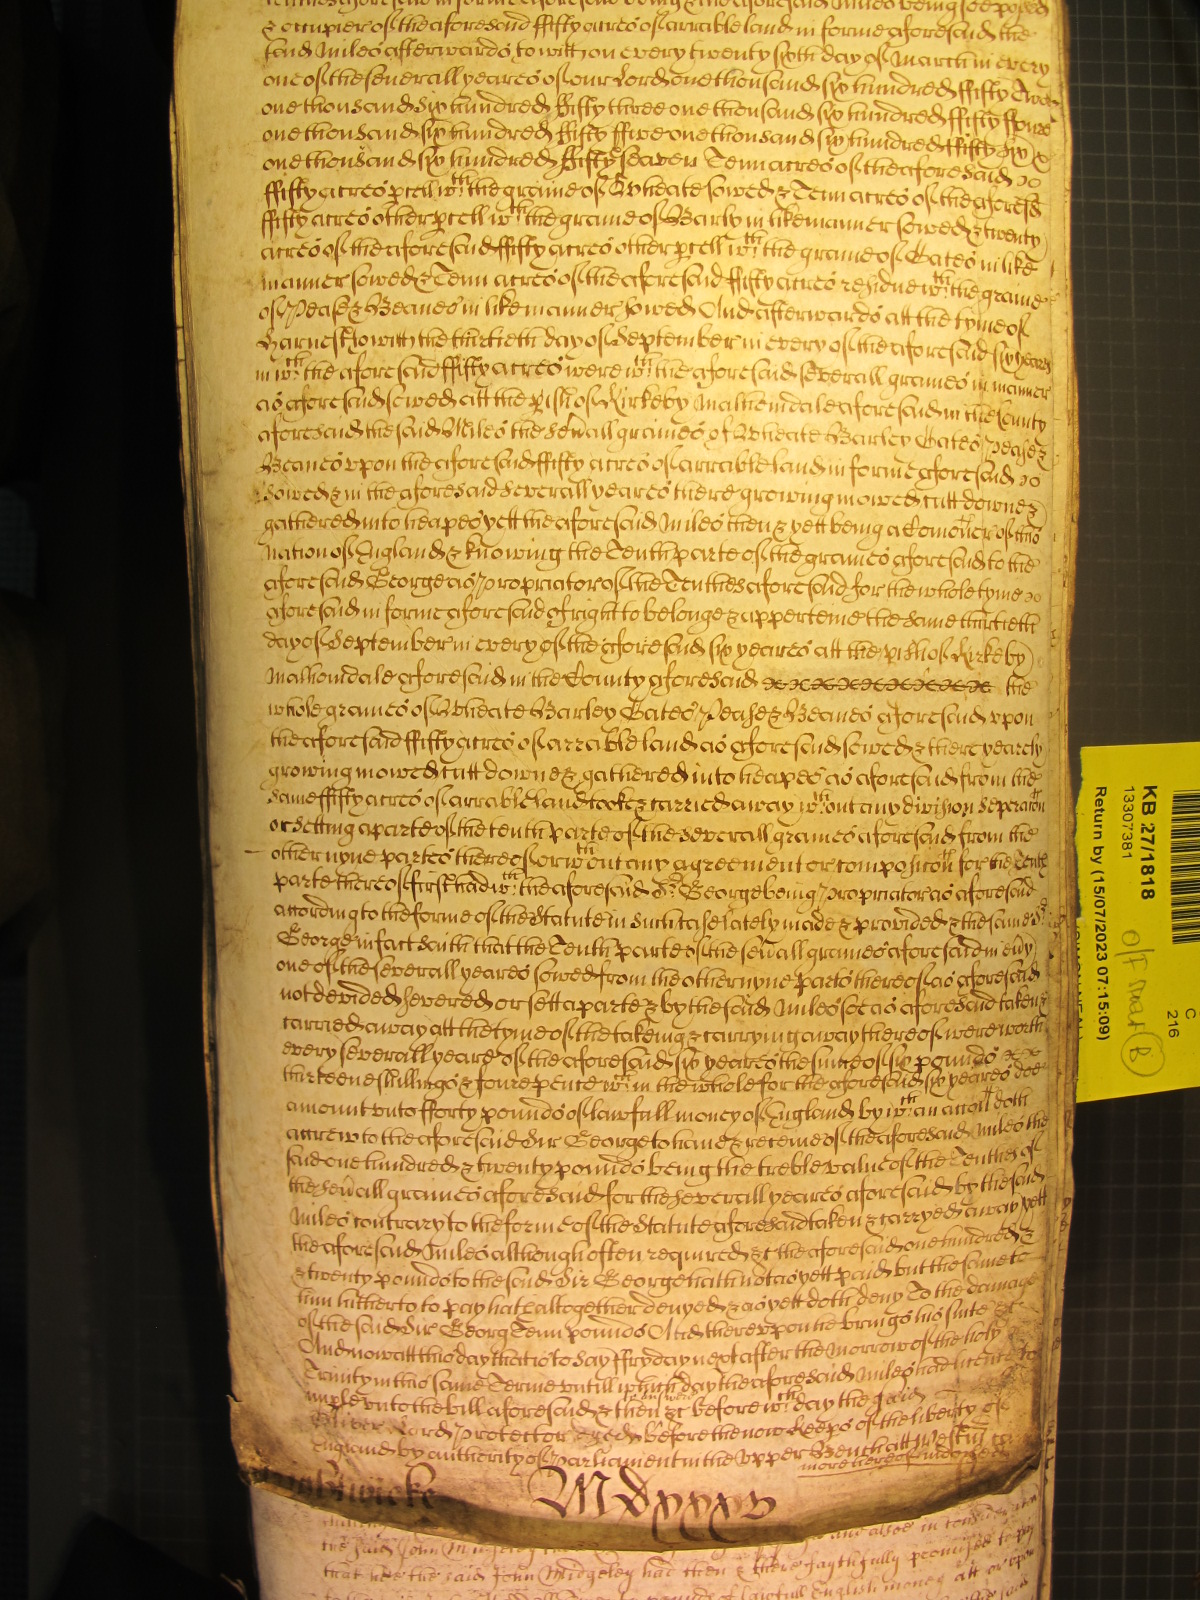 & occupier of the aforesaid ffifty acres of arrable land in forme aforesaid the
said Miles afterwards to witt on every twenty sixth day of March in every
one of the severall yeares of our Lord one thousand six hundred ffifty Two
one thousand six hundred ffifty three one thousand six hundred ffifty ffoure
one thousand six hundred ffifty ffive one thousand six hundred ffifty six
one thousand six hundred ffifty seaven Tenn acres of the aforesaid
ffifty acres pcell wth the graine of Wheate sowed & Tenn acres of the aforesd
ffifty acres other pcell wth the graine of Barly in like manner sowed & twenty
acres of the aforesaid ffifty acres other pcell wth the graine of Oates in like
manner sowed & Tenn acres of the aforesaid ffifty acres residue wth the graine
of Pease & Beanes in like manner sowed And afterwards att the tyme of
Harvest to witt the thirtieth day of September in every of the aforesaid six yeares
in wch the aforesaid ffifty acres were wth the aforesaid severall graines in manner
as aforesaid sowed att the pish of Kirkeby Malhomdale aforesaid in the County
aforesaid the said Miles the sevall graines of Wheate Barley Oates Pease &
Beanes upon the aforesaid ffifty acres of arrable land in forme aforesaid
sowed & in the aforesaid severall yeares there growing mowed cutt downe &
gathered into heapes yett the aforesaid Miles then & yett being a Comoner of this
Nation of England & knowing the Tenth parte of the graines aforesaid to the
aforesaid George as Propriator of the Tenthes aforesaid for the whole tyme
aforesaid in forme aforesaid of right to belonge & apperteine the same thirtieth
day of September in every of the aforesaid six yeares att the pish of Kirkeby
Malhomdale aforesaid in the County aforesaid the
whole graines of Wheate Barley Oates Pease & Beanes aforesaid upon
the aforesaid ffifty acres of arrable land as aforesaid sowed & there yearely
growing mowed cutt downe & gathered into heapes as aforesaid from the
same ffifty acres of arrable land tooke & carried away wthout any division seperacon
or setting aparte of the tenth parte of the severall graines aforesaid from the
other nyne partes thereof or wthout any agreement or composicon for the Tenth
parte thereof first had wth the aforesaid Sr George being Propriator as aforesaid
according to the forme of the Statute in such case lately made & provided & the same Sr
George in fact saith that the Tenth parte of the sevall graines aforesaid in evy
one of the severall yeares sowed from the other nyne parts thereof as aforesaid
not devided severed or sett aparte & by the said Miles soe as aforesaid taken &
carried away att the tyme of the takeing & carrying away thereof were worth
every severall yeare of the aforesaid six yeares the sume of six pounds
thirteene shillings & foure pence wch in the whole for the aforesaid six yeares doe
amount unto fforty pounds of lawfull money of England by wch an accon doth
accrew to the aforesaid Sir George to have & receive of the aforesaid Miles the
said one hundred & twenty pounds being the treble value of the Tenthes of
the sevall graines aforesaid for the severall yeares aforesaid by the said
Miles contrary to the forme of the Statute aforesaid taken & carryed away yett
the aforesaid Miles although often required &c the aforesaid one hundred &
& twenty pounds to the said Sir George hath not as yett paid but the same to
him hitherto to pay hath altogether denyed & as yett doth deny To the damage
of the said Sir Georg Tenn pounds And thereupon he brings his suite &c
And now att this day that is to say ffryday next after the morrow of the holy
Trinity in this same Terme untill which day the aforesaid Miles had licence to
imple unto the bill aforesaid & then to answere &c before wch day the said
Oliver Lord Protector before the now keeps of the liberty of
England by authority of Parliament in the upper Bench att Westm
more thereof
Mdxxxv
and alsoe in
the said John
that hee the said John Midgeley had then & there faythfully promised to pay
of lawfull English money att or upon